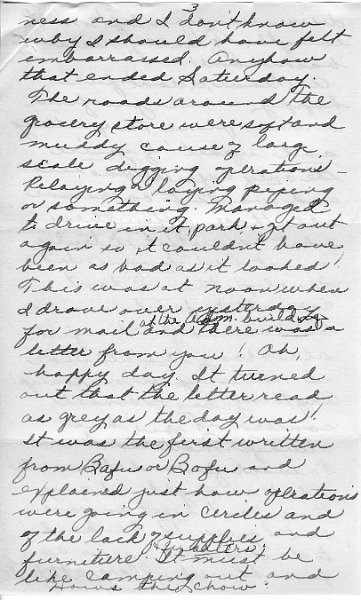 3
ness and I don't know
why I should have felt
embarrassed. Anyhow
that ended Saturday.
The roads around the
grocery store were soft and
muddy cause of large
scale digging operations -
Relaying & laying piping
or something. Managed
to drive in it, park & get out
again so it couldn't have
been as bad as it looked!
This was at noon when
I drove over yesterday
at the Adm. building
for mail and there was a
letter from you! Oh,
happy day. It turned
out that the letter read
as grey as the day was!
It was the first written
from Bafu or Bofu and
explained just how operations
were going in circles and
of the lack of supplies and
furneture. It must be
like camping out and
Hows the chow.